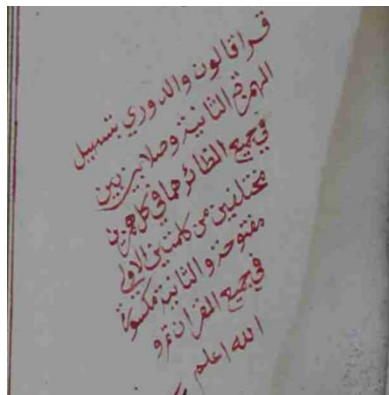 قرا قالون والدوري بتسهيل
الهمزة الثانية وصلا بين بين
في جميع النظائرهما في كل همزتين
مختلفين من كلمتين الاولى
مفتوحة والثانية مكسورة
في جميع القران تم و
الله اعلم